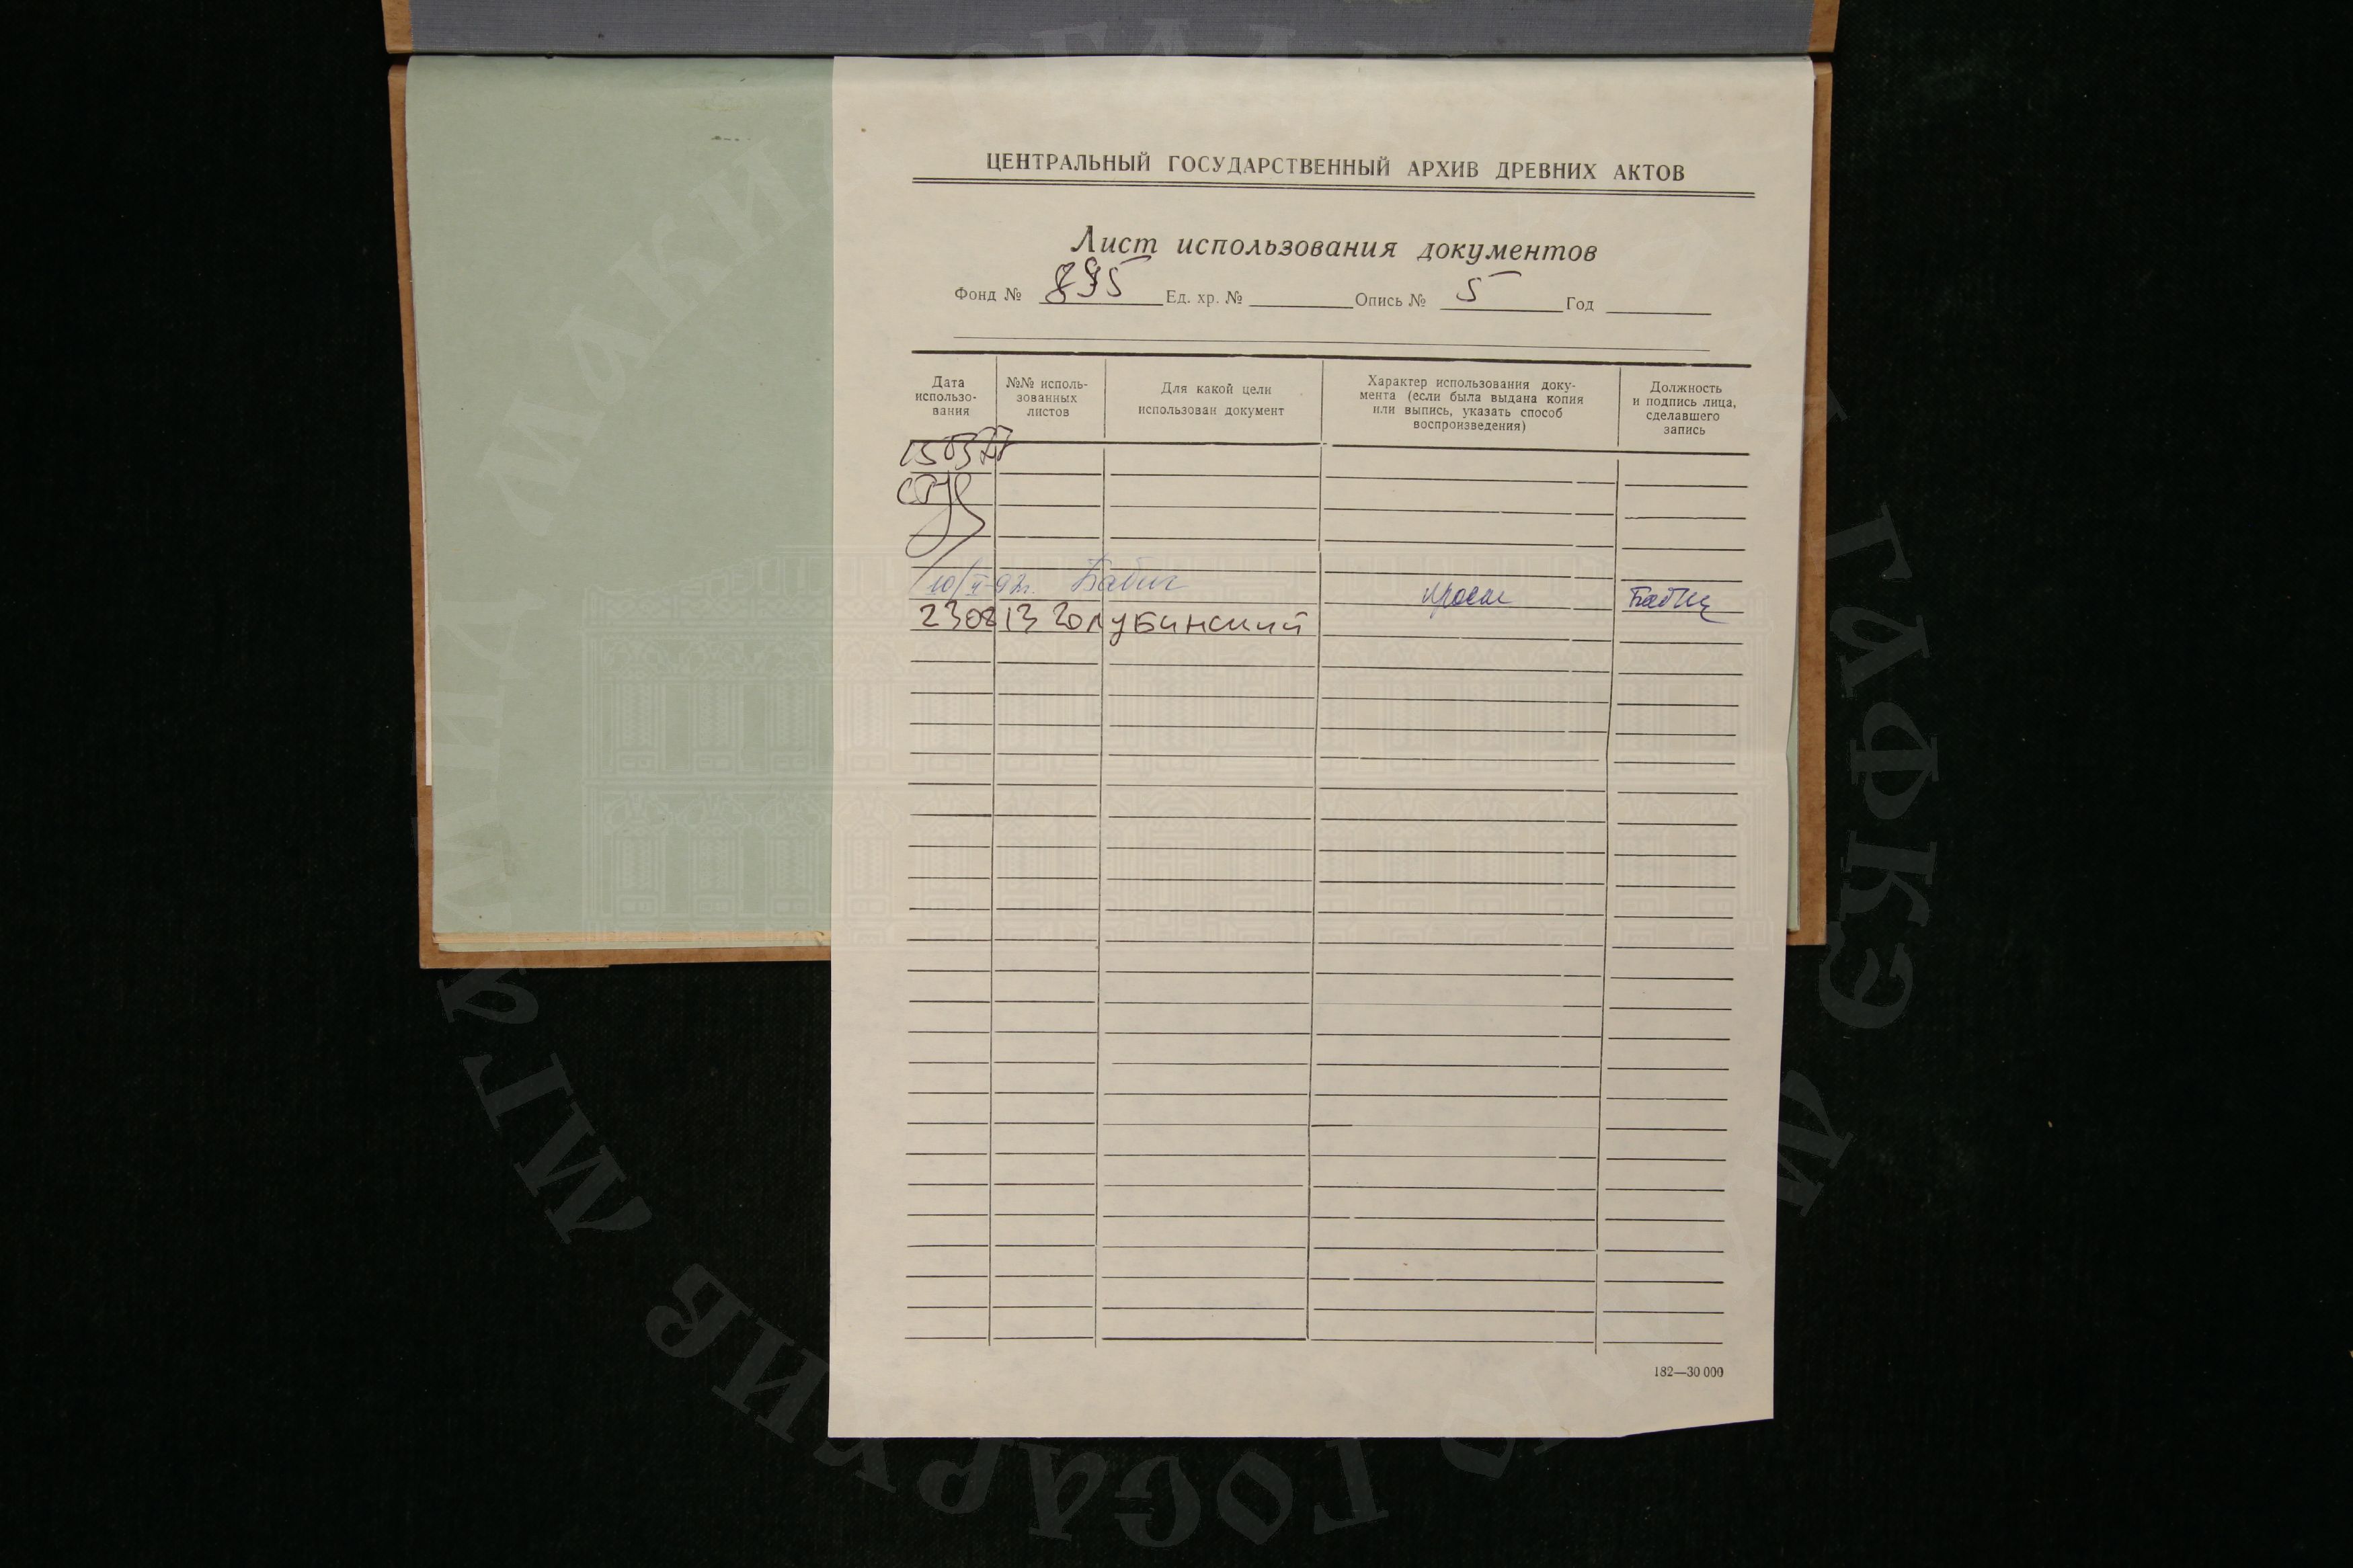 ЦЕНТРАЛЬНЫЙ ГОСУДАРСТВЕННЫЙ АРХИВ ДРЕВНИХ АКТОВ
Лист использования документов
Фонд № 895 Ед. хр. № Опись № 5 Год
Дата использо-вания
№№ исполь-зованных листов
Для какой цели использован документ
Характер использования доку-мента (если была выдана копия или выпись, указать способ воспроизведения)
Должность и подпись лица, сделавшего запись
10/V-92г. Бабич просм Бабич
230813 Голубинский
182—30 000